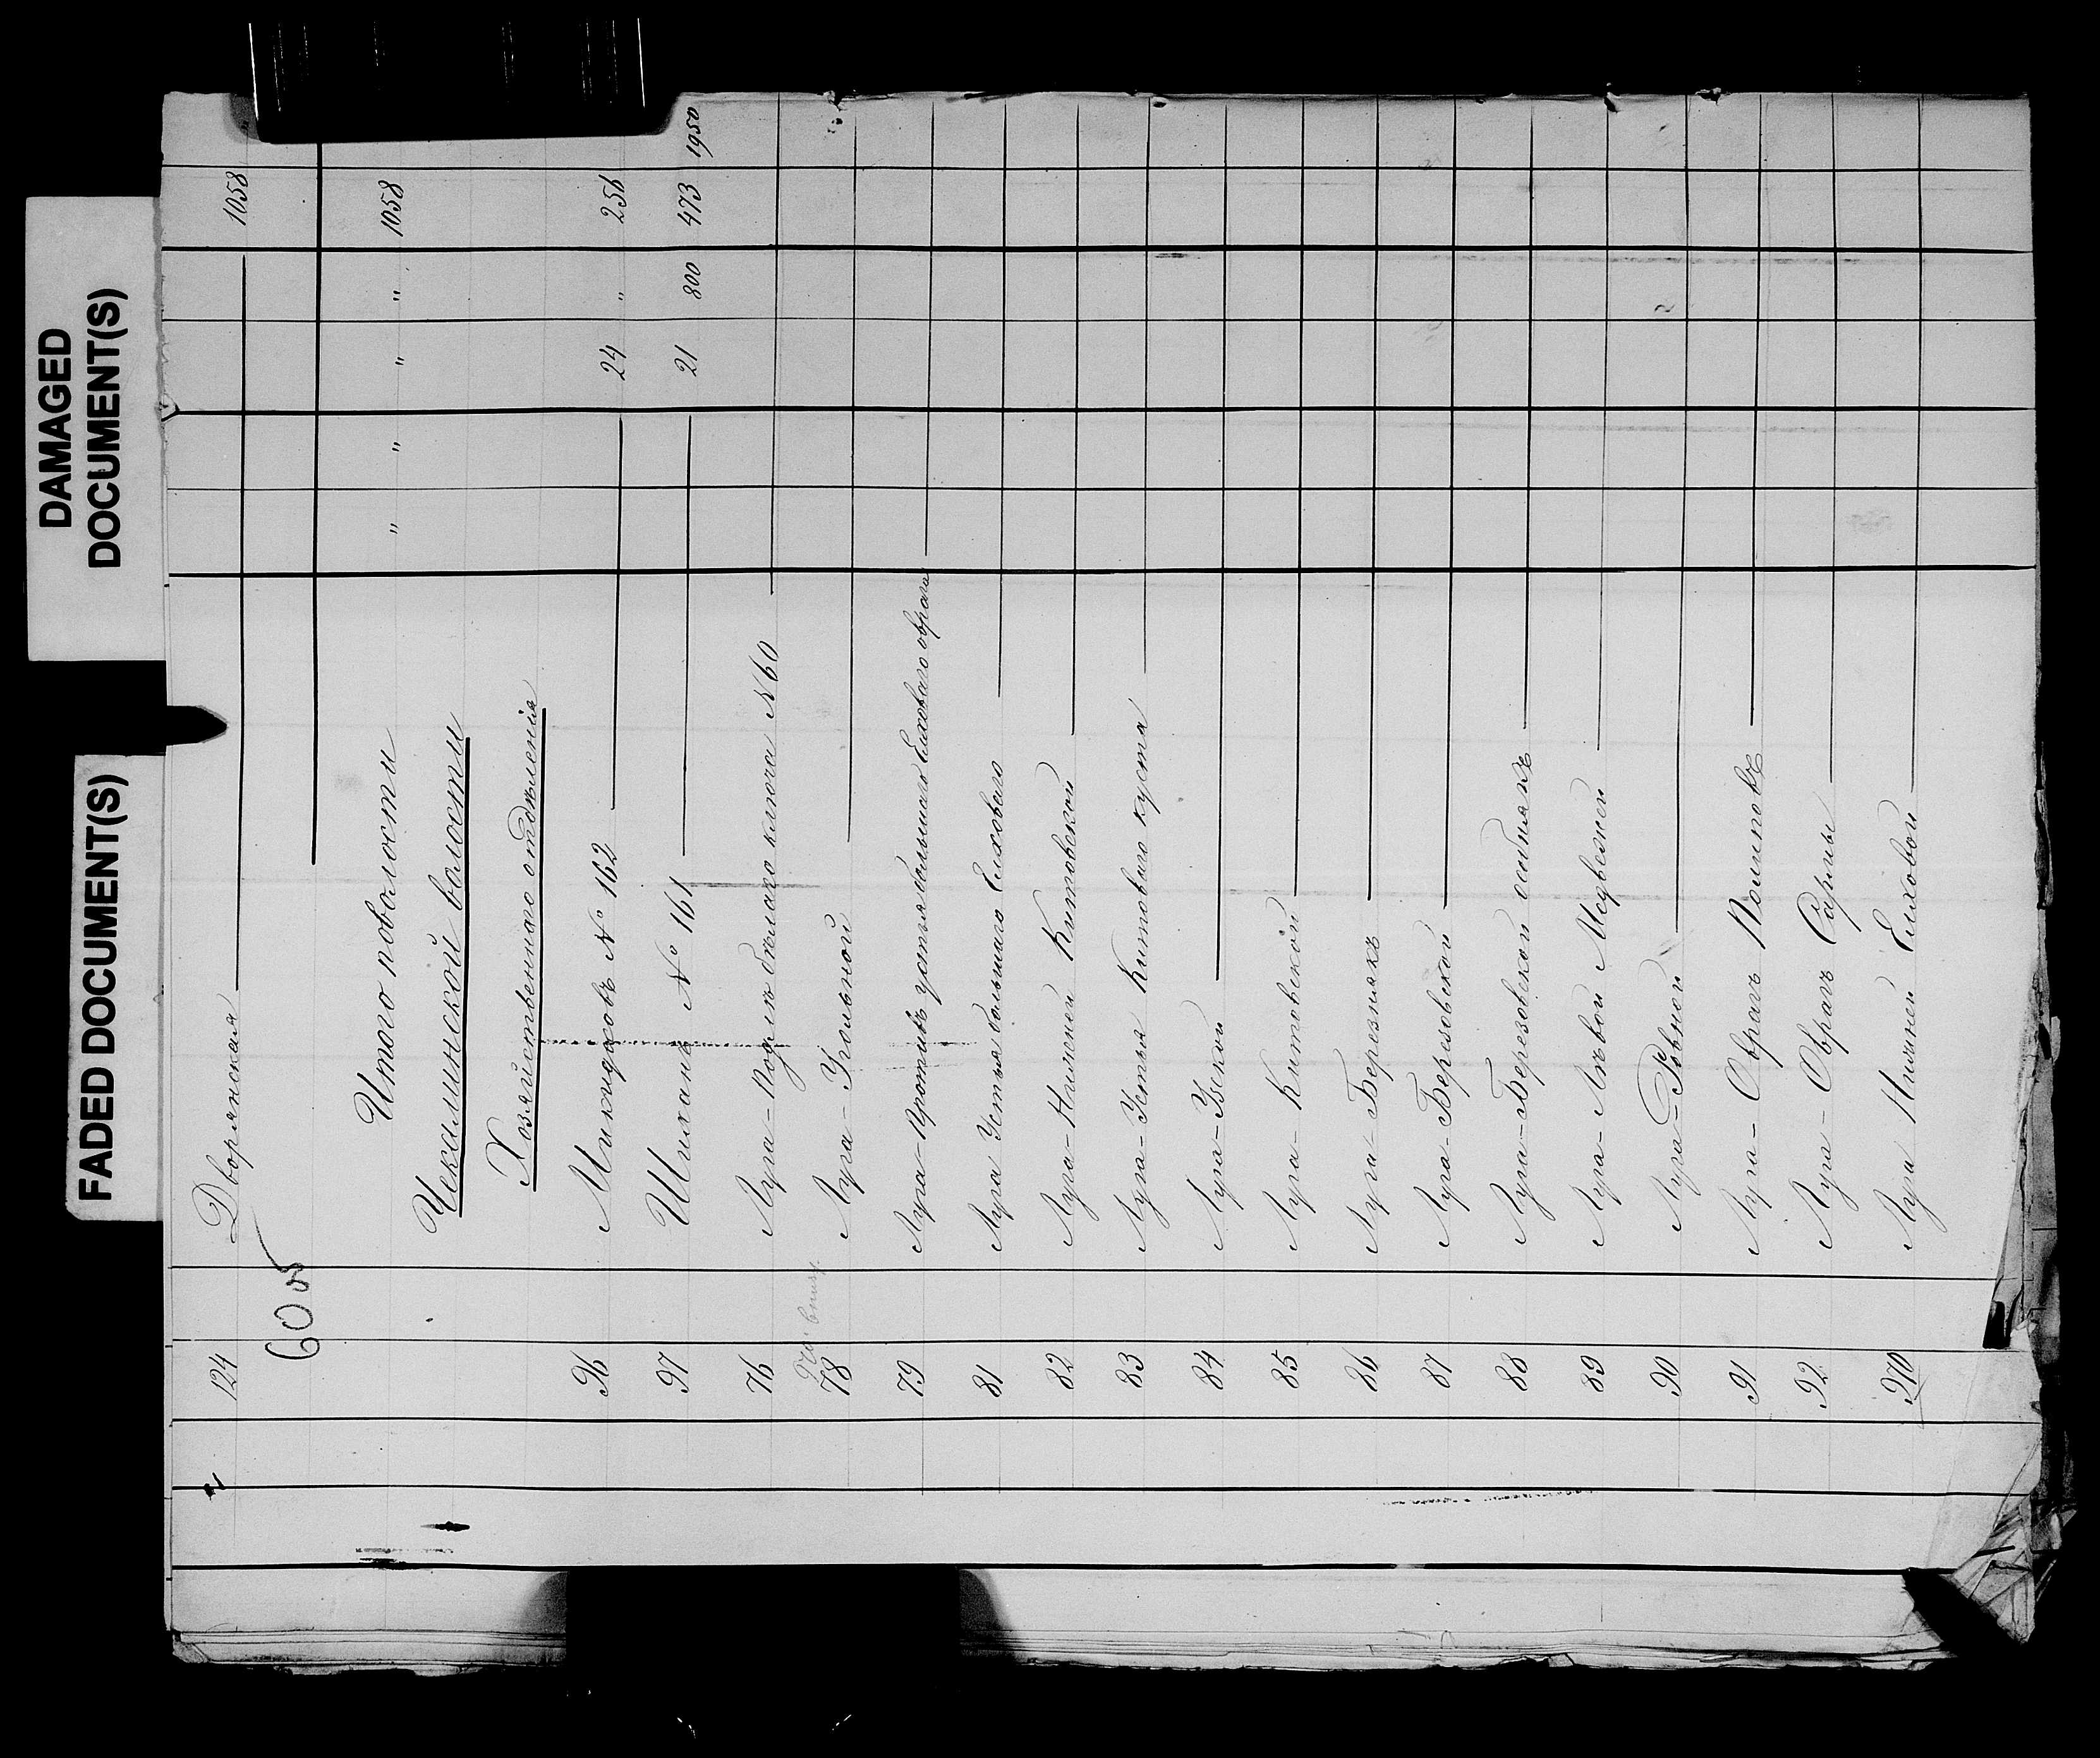 DAMAGED
DOCUMENT(S)
FADED DOCUMENT(S)
124 Дворянская 1058
60 об
Итого по волости " " " " 1058
Чекалинской волости
Хозяйственнаго отдѣленія
96 Микидасовъ № 162 24 " 256
97 Шихане № 161 21 800 473 1950
76 Луга-Подлѣ бѣлаго ключа №60
78 Луга-Угольной
79 Луга-Противъ устья большаго Елховаго оврага
81 Луга Устья большаго Елховаго
82 Луга-Нижней Китовской
83 Луга-Устья Китоваго куста
84 Луга-Уской
85 Луга-Китовской
86 Луга-Березнякъ
87 Луга-Березовской
88 Луга-Березовской осотникъ
89 Луга-Лѣвой Медвежей
90 Луга-Ровной
91 Луга-Оврагъ Полиповъ
92 Луга-Оврагъ Сармы
270 Луга Нижней Елховой